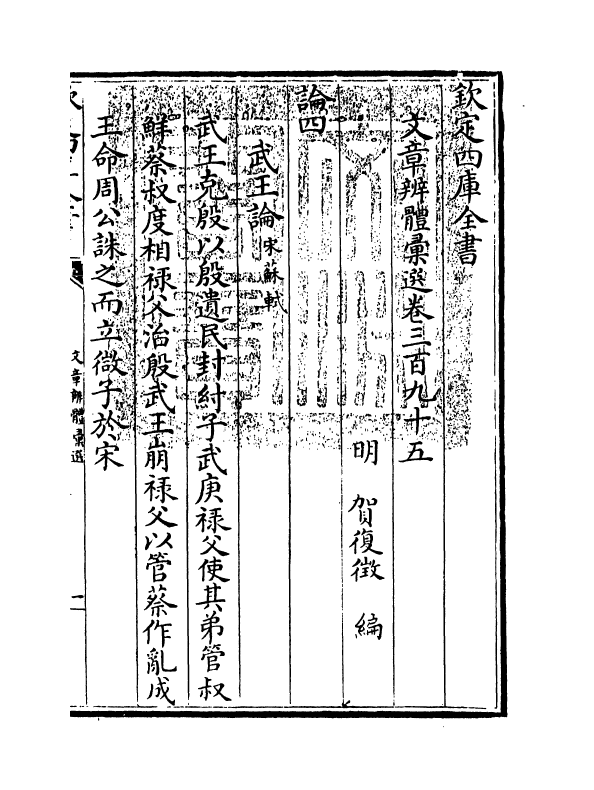 欽定四庫全書
文章辨體彙選卷三百九十五
明　賀復徵　編
論四
武王論宋蘇軾
武王克殷以殷遺民封紂子武庚祿父使其弟管叔
鮮蔡叔度相祿父治殷武王崩祿父以管蔡作亂成
王命周公誅之而立微子於宋
文章辨體彙選